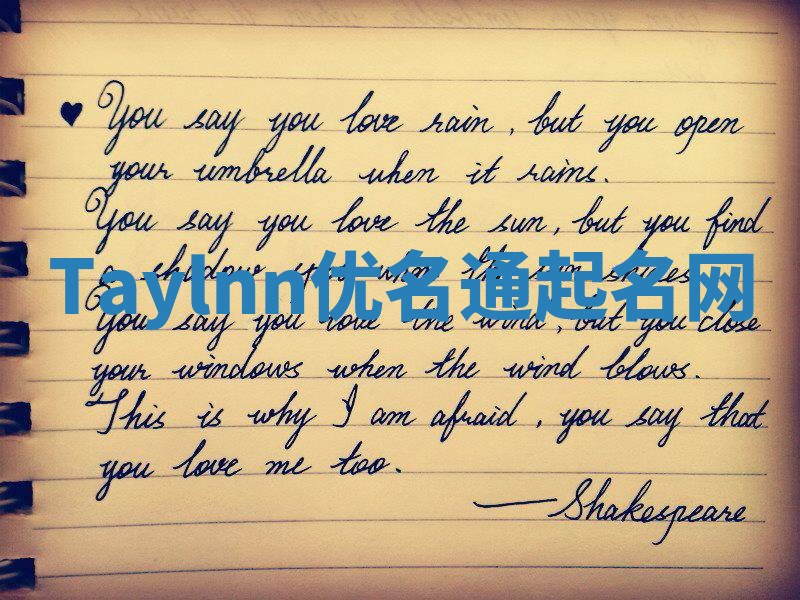 ♥ You say you love rain, but you open
your umbrella when it rains.
You say you love the sun, but you find
a shadow spot when the sun shines.
Taylnn优名通起名网
You say you love the wind, but you close
your windows when the wind blows.
This is why I am afraid, you say that
you love me too.
—Shakespeare